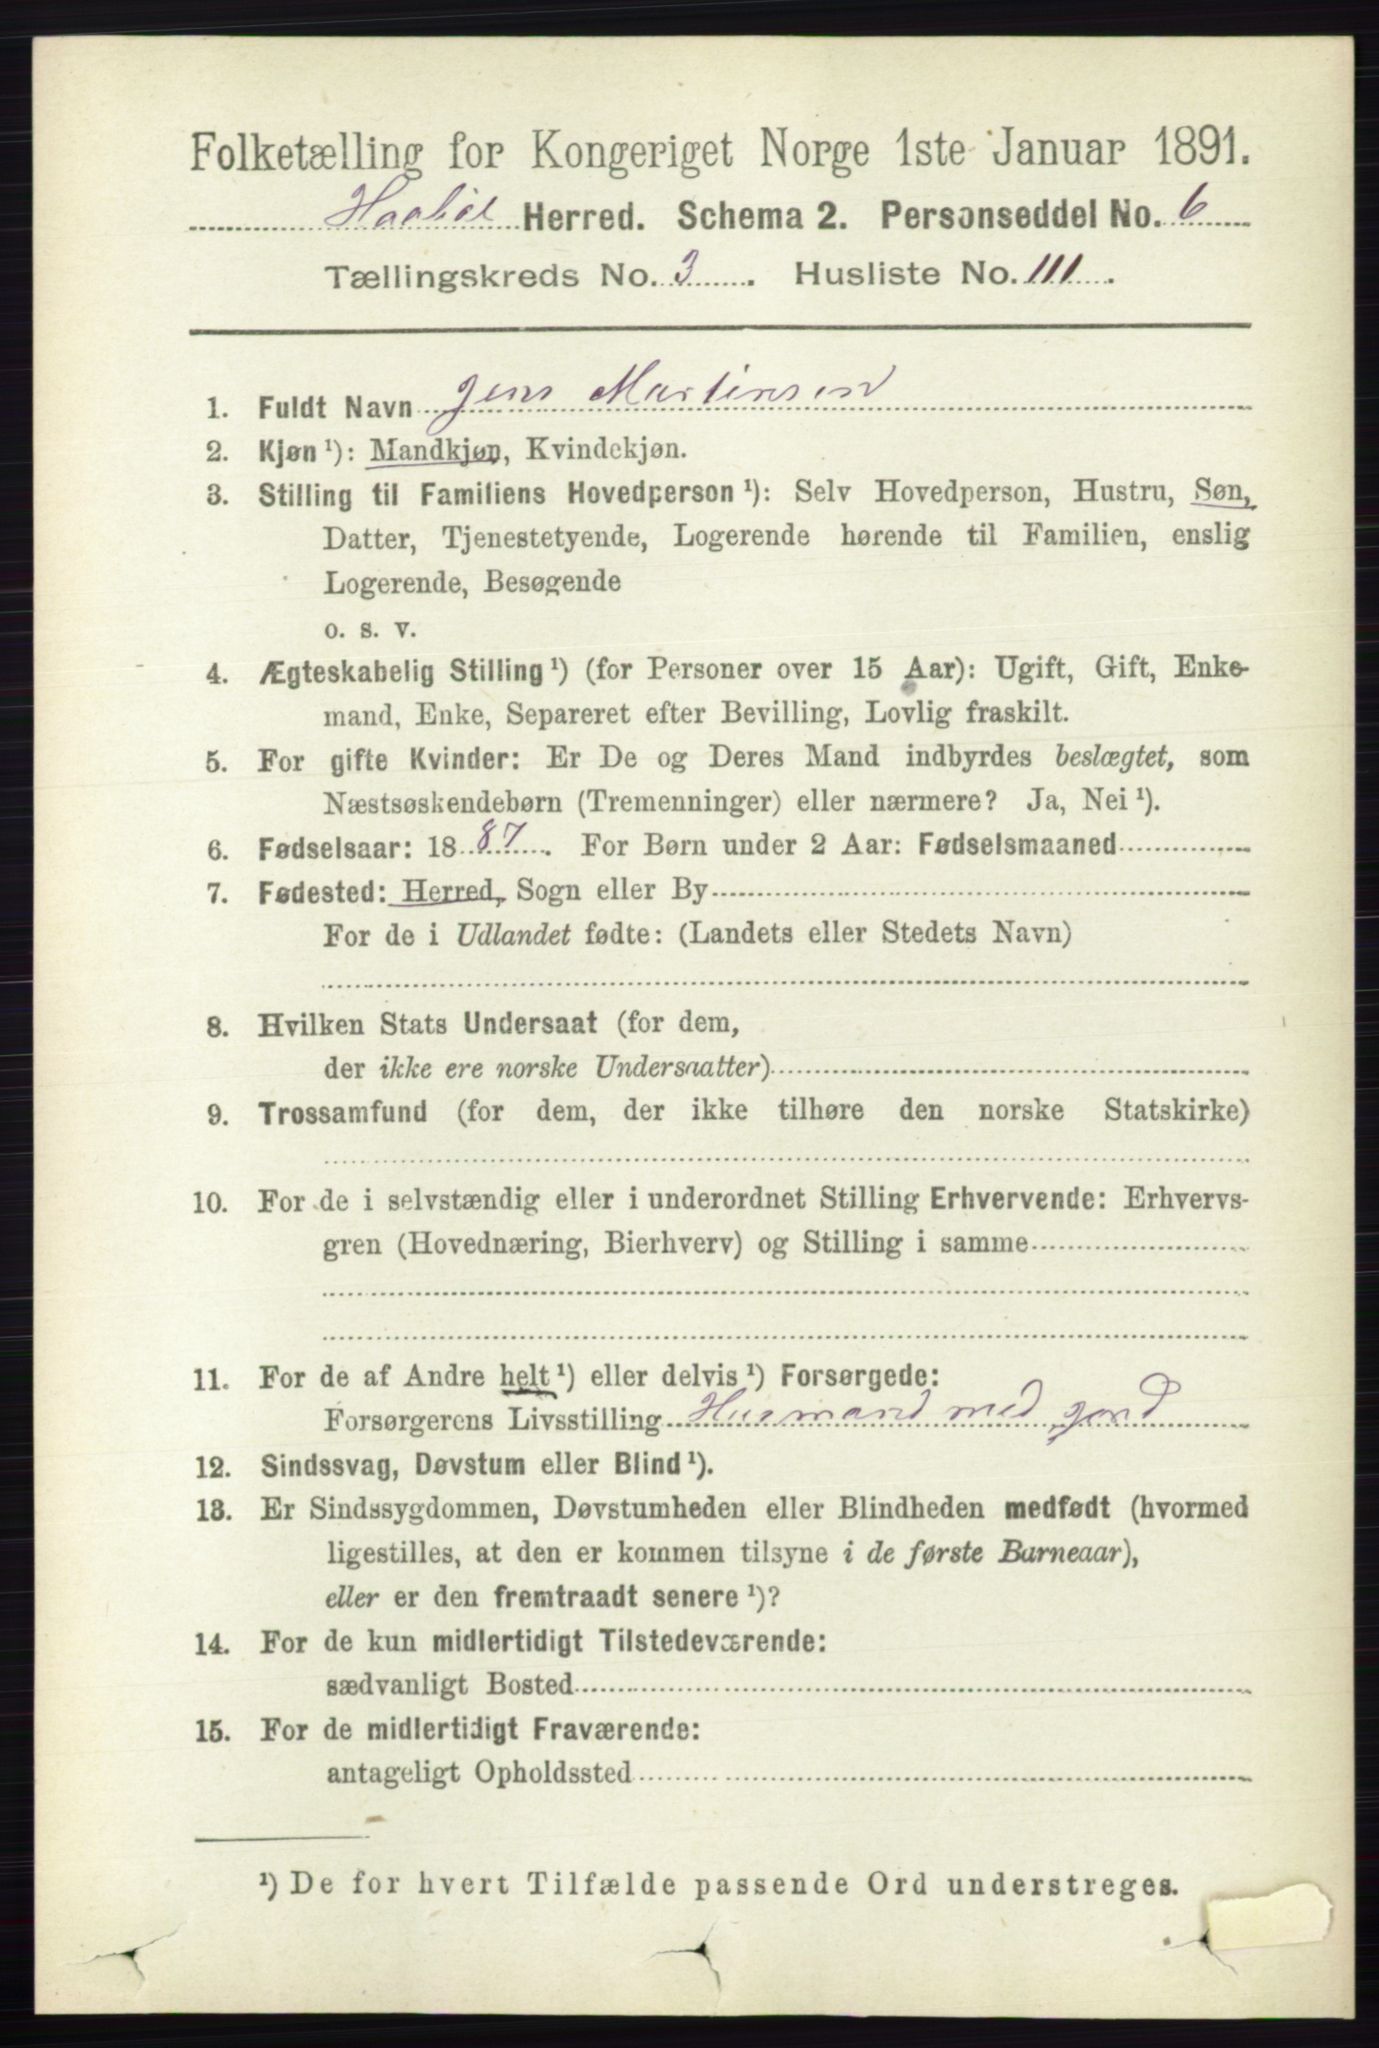 Folketælling for Kongeriget Norge 1ste Januar 1891.
Haabøl Herred. Schema 2. Personseddel No. 6
Tællingskreds No. 3. Husliste No. 111.
1. Fuldt Navn Jens Martinsen
2. Kjøn ¹): Mandkjøn, Kvindekjøn.
3. Stilling til Familiens Hovedperson ¹): Selv Hovedperson, Hustru, Søn,
Datter, Tjenestetyende, Logerende hørende til Familien, enslig
Logerende, Besøgende
o. s. v.
4. Ægteskabelig Stilling ¹) (for Personer over 15 Aar): Ugift, Gift, Enke-
mand, Enke, Separeret efter Bevilling, Lovlig fraskilt.
5. For gifte Kvinder: Er De og Deres Mand indbyrdes beslægtet, som
Næstsøskendebørn (Tremenninger) eller nærmere? Ja, Nei ¹).
6. Fødselsaar: 1887. For Børn under 2 Aar: Fødselsmaaned
7. Fødested: Herred, Sogn eller By
For de i Udlandet fødte: (Landets eller Stedets Navn)
8. Hvilken Stats Undersaat (for dem,
der ikke ere norske Undersaatter)
9. Trossamfund (for dem, der ikke tilhøre den norske Statskirke)
10. For de i selvstændig eller i underordnet Stilling Erhvervende: Erhvervs-
gren (Hovednæring, Bierhverv) og Stilling i samme
11. For de af Andre helt ¹) eller delvis ¹) Forsørgede:
Forsørgerens Livsstilling Husmand med jord
12. Sindssvag, Døvstum eller Blind ¹).
13. Er Sindssygdommen, Døvstumheden eller Blindheden medfødt (hvormed
ligestilles, at den er kommen tilsyne i de første Barneaar),
eller er den fremtraadt senere ¹)?
14. For de kun midlertidigt Tilstedeværende:
sædvanligt Bosted
15. For de midlertidigt Fraværende:
antageligt Opholdssted
¹) De for hvert Tilfælde passende Ord understreges.